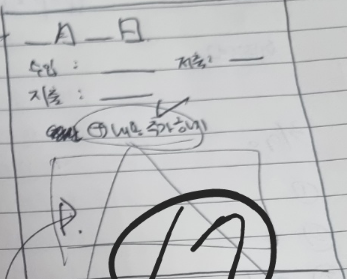 _월 _日
수입 : ___ 저축 : __
지출 : ___
⊕ 내역 추가하기
P.
17